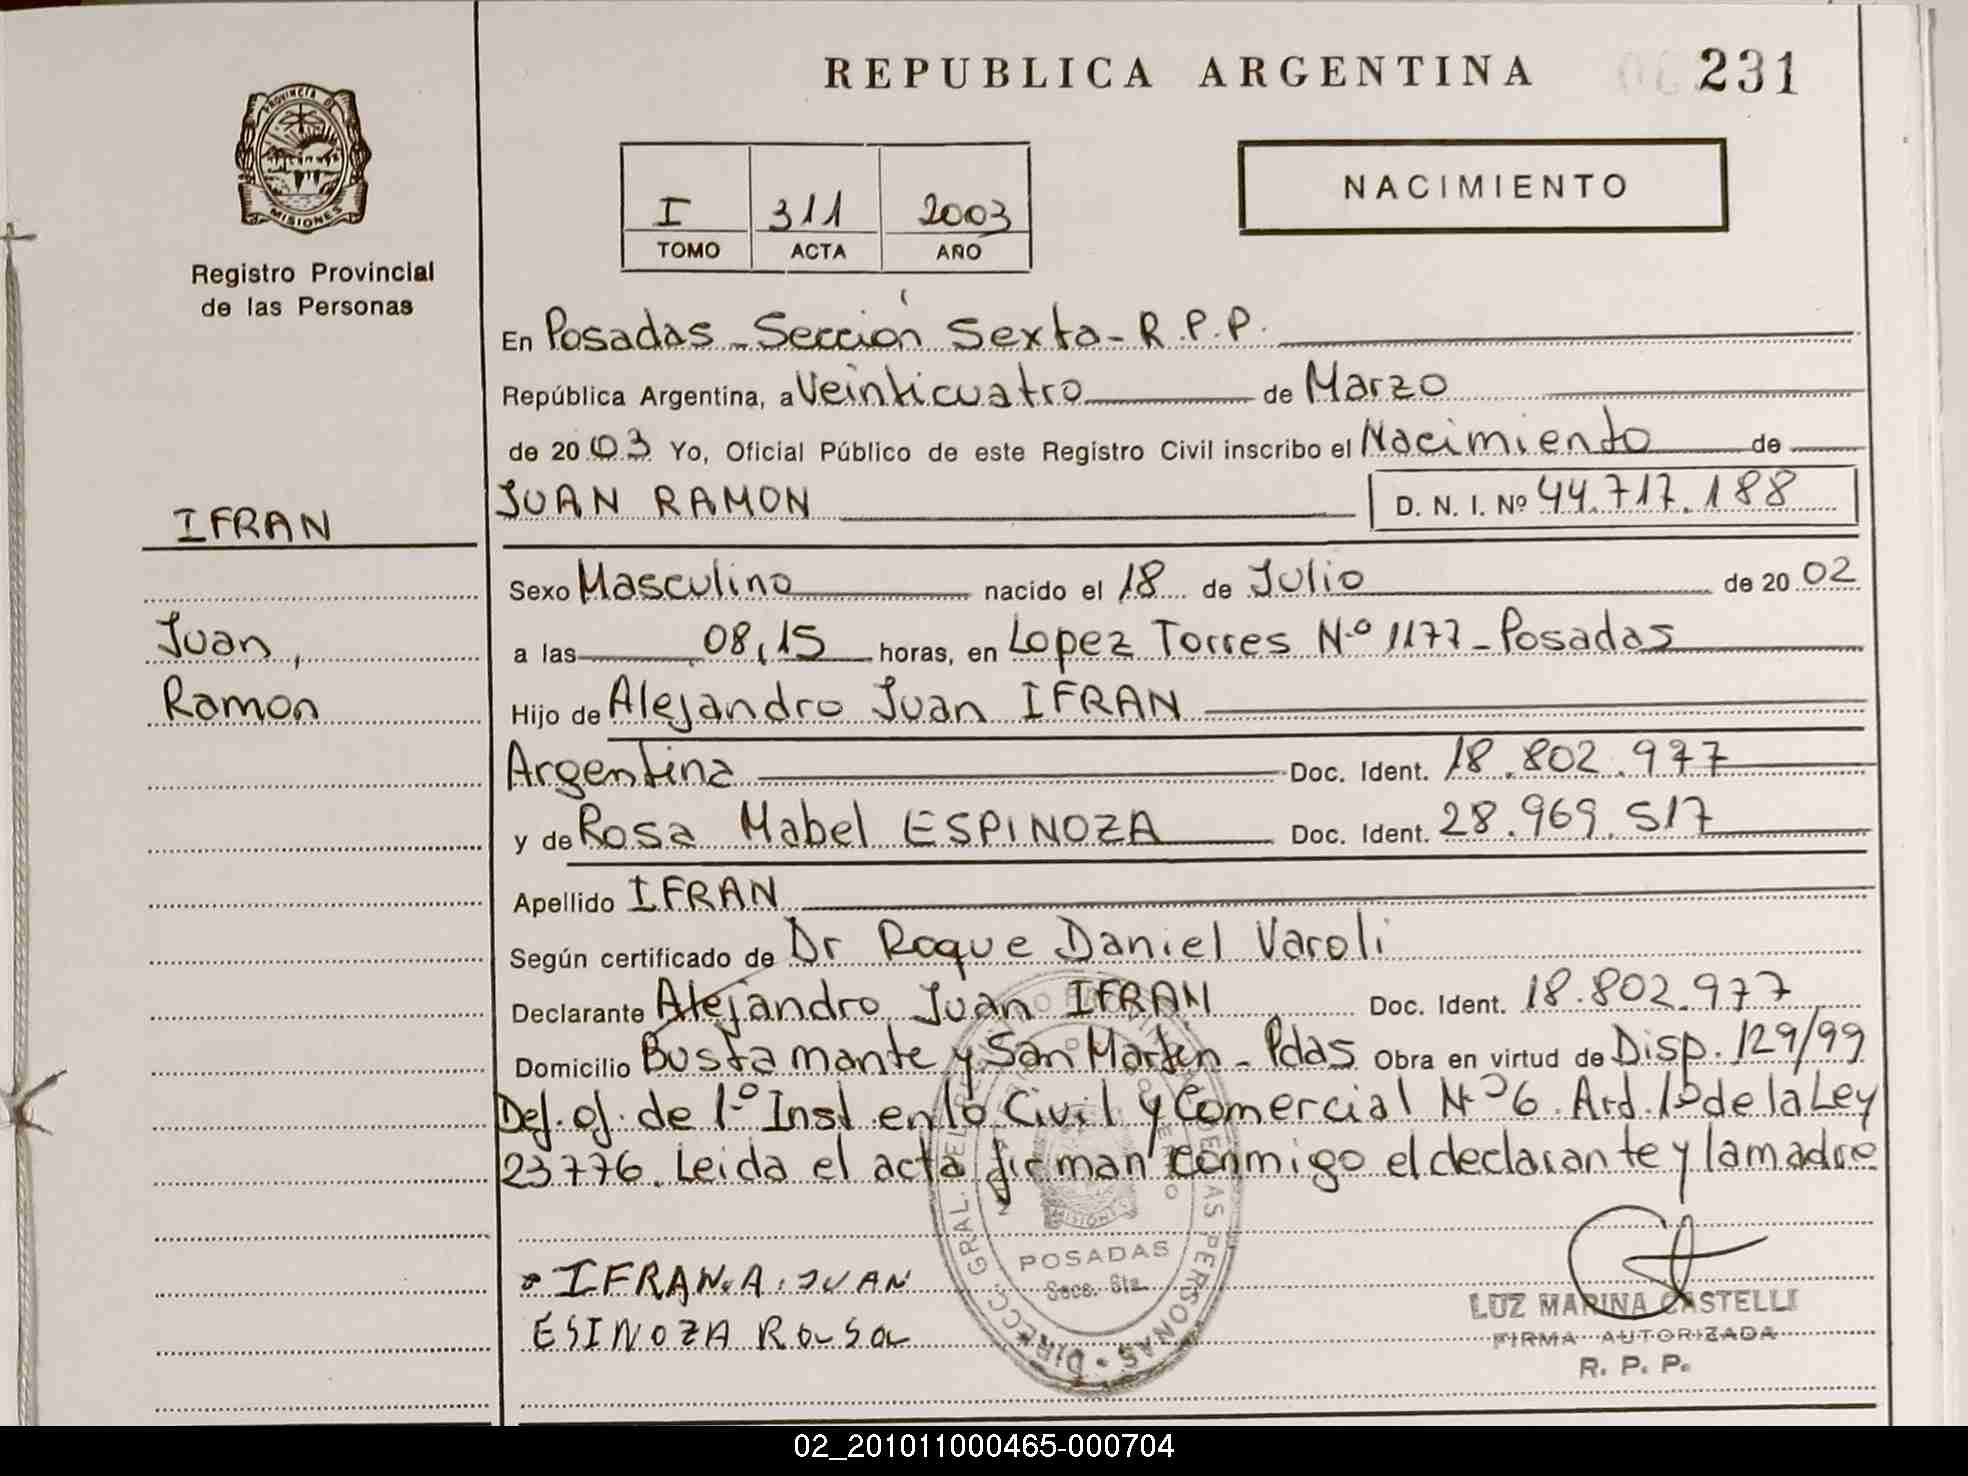 REPUBLICA ARGENTINA
231
PROVINCIA DE
MISIONES
Registro Provincial
de las Personas
I 311 2003
TOMO ACTA AÑO
NACIMIENTO
En Posadas - Sección Sexta - R.P.P.
República Argentina, a Veinticuatro de Marzo
de 2003 Yo, Oficial Público de este Registro Civil inscribo el Nacimiento de
JUAN RAMON D. N. I. Nº 44.717.188
IFRAN
Juan,
Ramon
Sexo Masculino nacido el 18 de Julio de 2002
a las 08,15 horas, en Lopez Torres N.º 1177 - Posadas
Hijo de Alejandro Juan IFRAN
Argentina Doc. Ident. 18.802.977
y de Rosa Mabel ESPINOZA Doc. Ident. 28.969.517
Apellido IFRAN
Según certificado de Dr Roque Daniel Varoli
Declarante Alejandro Juan IFRAN Doc. Ident. 18.802.977
Domicilio Bustamante y San Martin - Pdas Obra en virtud de Disp. 129/99
Def. of. de 1.º Inst en lo Civil y Comercial N.º 6. Art. 1º de la Ley
23776. Leida el acta firman conmigo el declarante y la madre
IFRAN.A.JUAN
ESINOZA ROSA
POSADAS
Secc. 6ta.
DIRECC. GRAL. DEL REGISTRO PROVINCIAL DE LAS PERSONAS
LUZ MARINA CASTELLI
FIRMA AUTORIZADA
R. P. P.
02_201011000465-000704